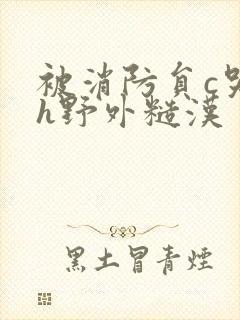 被消防员c哭
h野外糙漢
黑土冒青煙